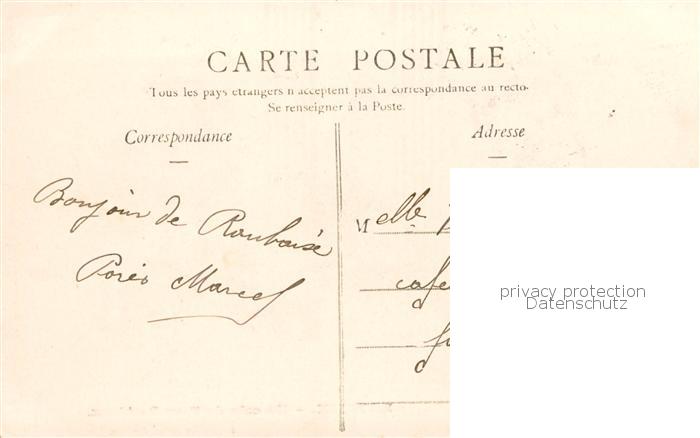 CARTE POSTALE
Tous les pays etrangers n acceptent pas la correspondance au recto.
Se renseigner à la Poste.
Correspondance
Adresse
Bonjour de
Marcel
Melle
privacy protection
Datenschutz